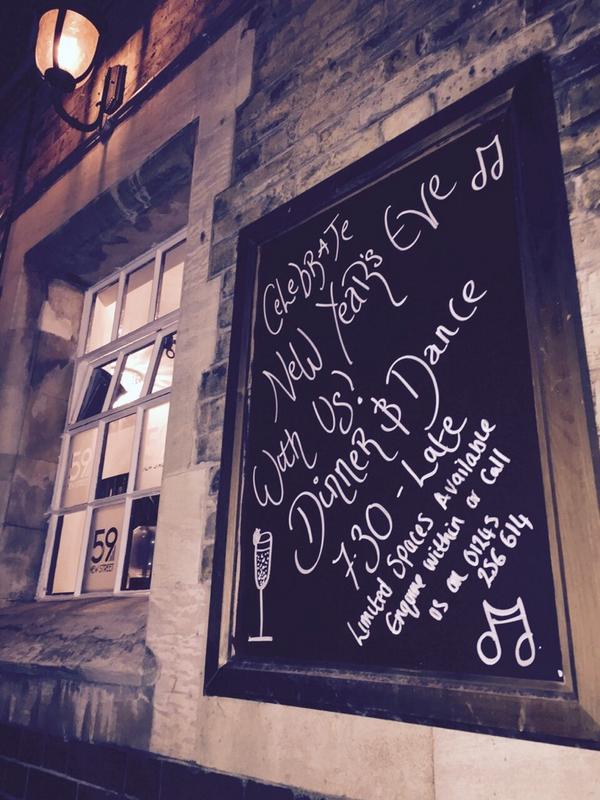 CELEBRATE
NEW YEAR'S EVE
With US!
DINNER & Dance
7.30 - Late
Limited Spaces Available
Enquire within or Call
us on 01245
256 614
59
59
NEW STREET